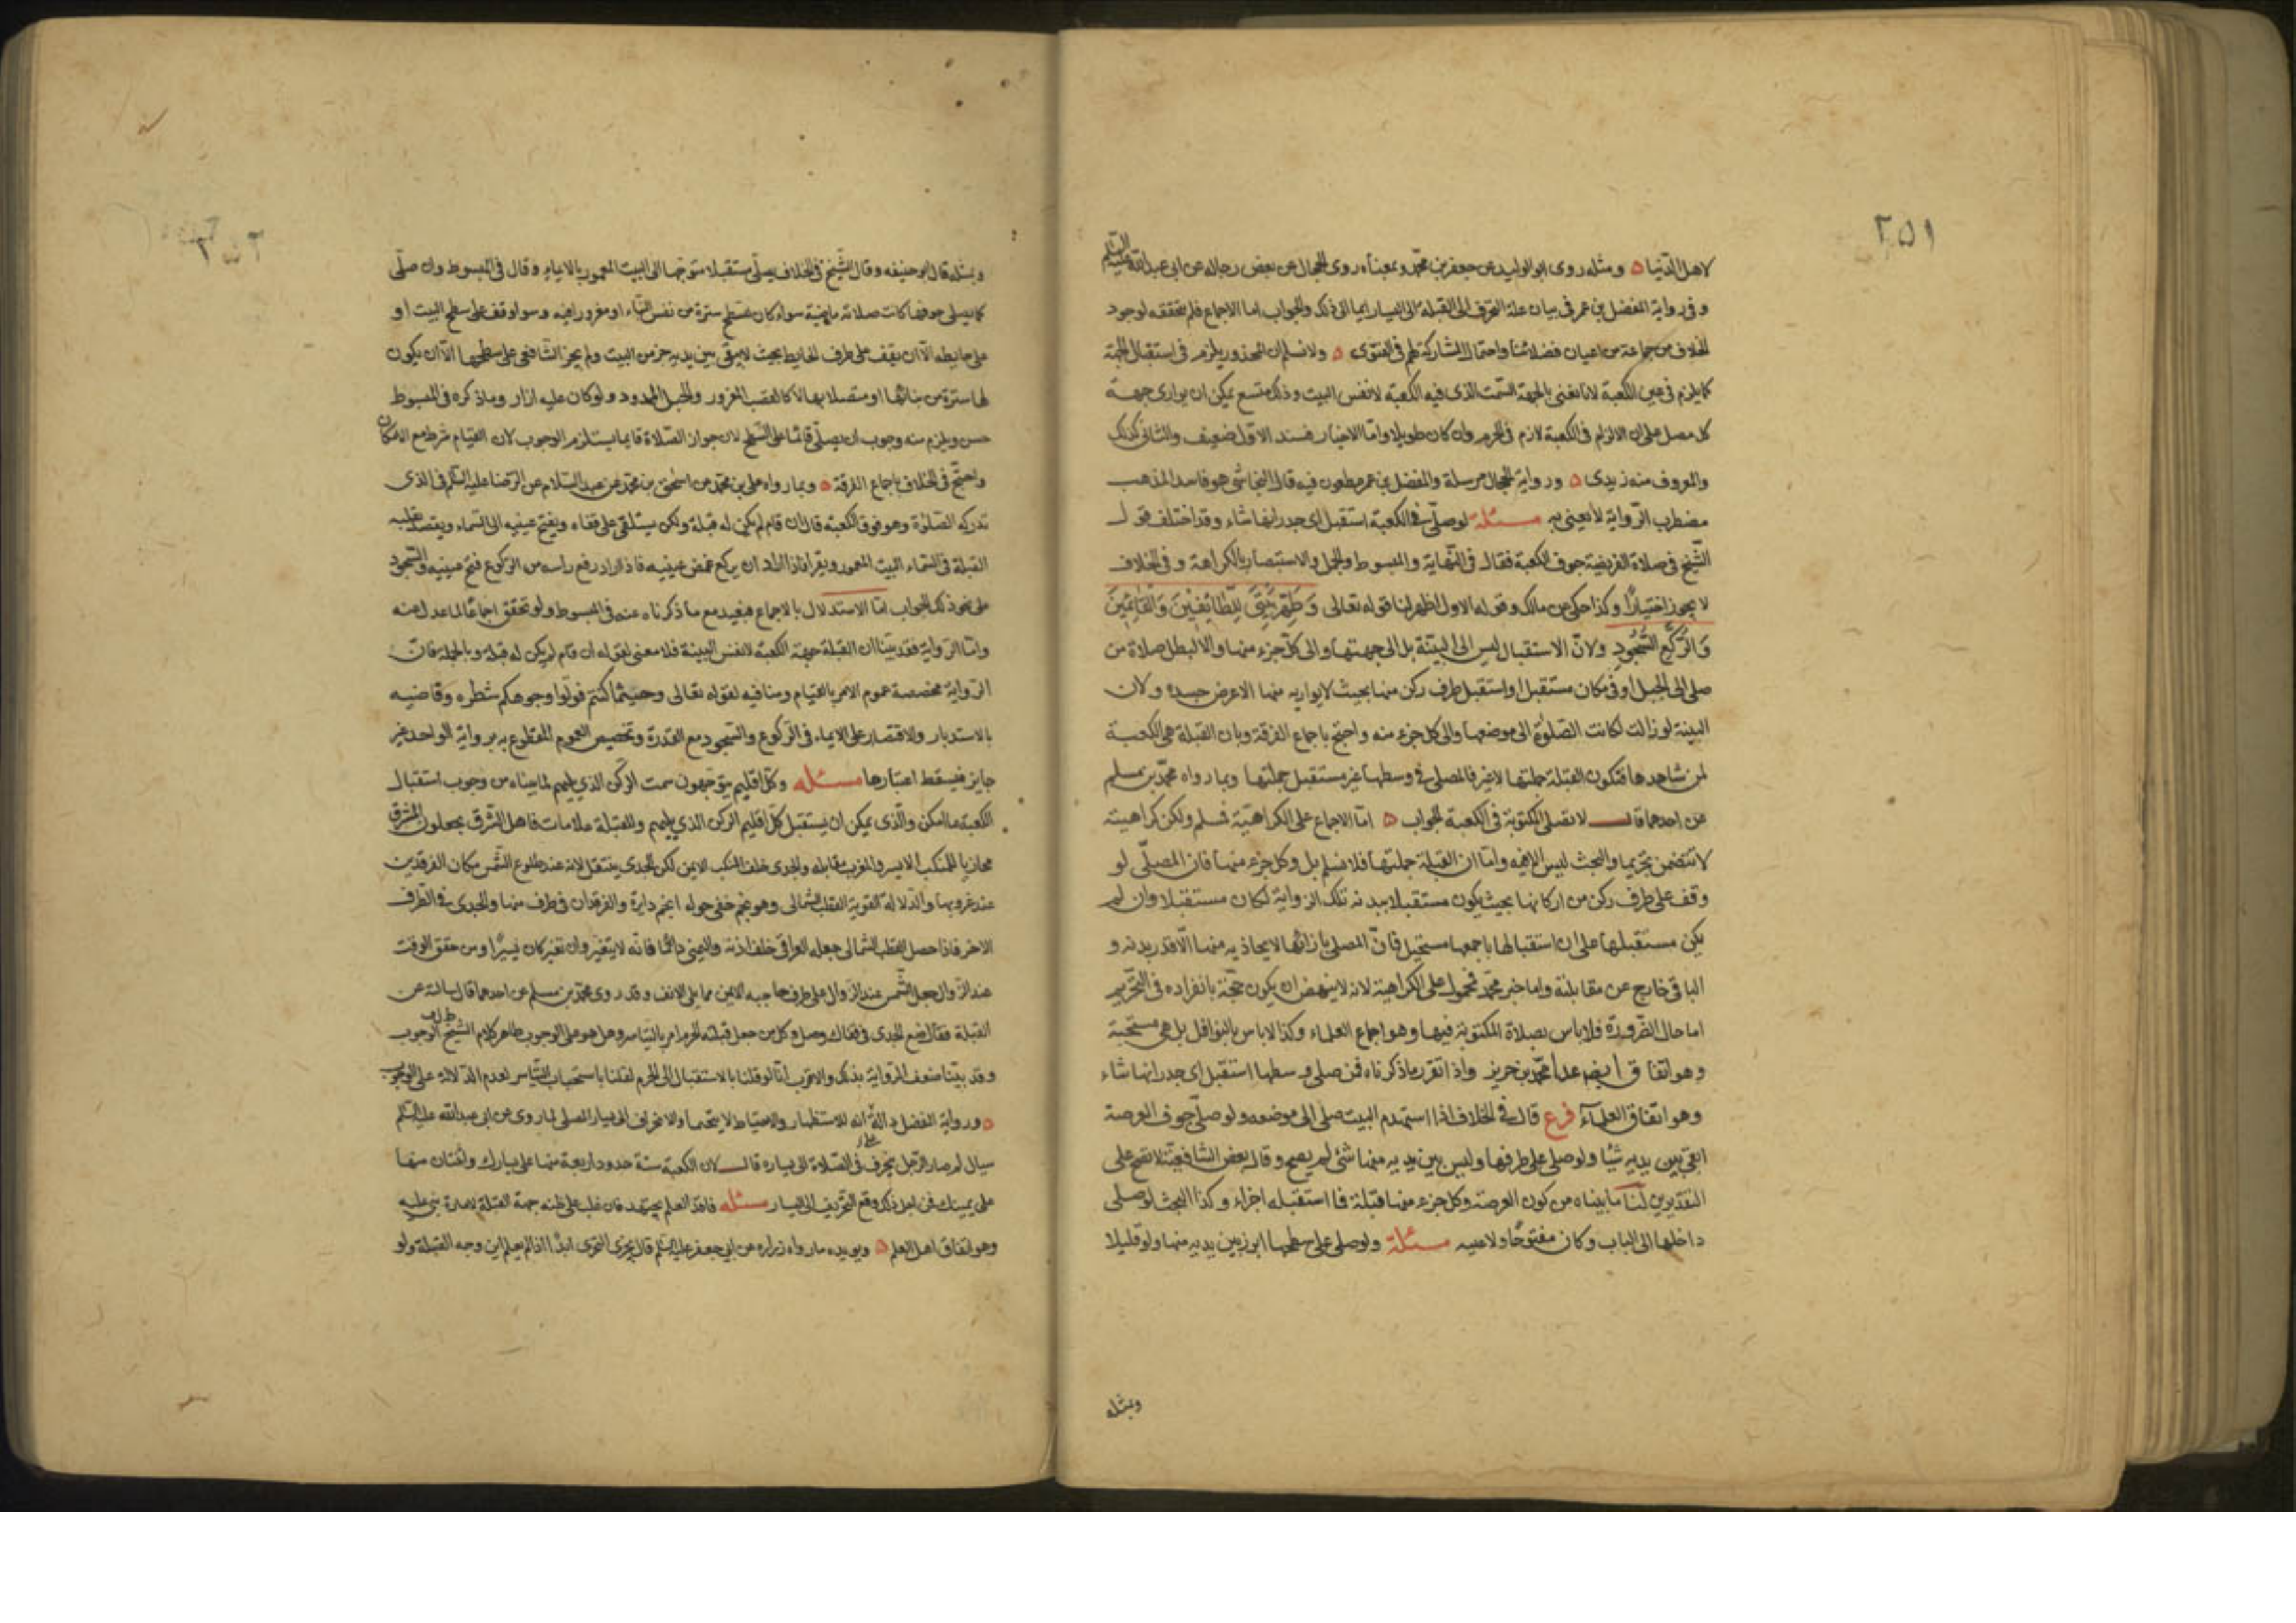 ٢٥١
لاهل الدنيا ٥ ومثله روى ابو الوليد عن جعفر بن محمد وبمعناه روى الحجال عن بعض رجاله عن ابى عبد الله عليه السلم
وفى رواية المفضل بن عمر فى بيان علة التحرف الى القبلة الى اليسار ايما الى ذلك والجواب اما الاجماع فلم نحققه لوجود
الخلاف من جماعة من اعيان فضلائنا واحتمال المشاركة لهم فى الفتوى ٥ ولا نسلم ان المحذور يلزم فى استقبال الجهة
كما يلزم فى عين الكعبة لانا نعنى بالجهة السمت الذى فيه الكعبة لا نفس البيت وذلك متسع يمكن ان يوازى جهة
كل مصل على ان الالزام فى الكعبة لازم فى الحرم وان كان طويلا واما الاخبار فسند الاول ضعيف والثانى كذلك
والمعروف منه زيدى ٥ ورواية الحجال مرسلة والمفضل بن عمر مطعون فيه قال النجاشى هو فاسد المذهب
مضطرب الرواية لا يعبى به مسئلة لو صلى فى الكعبة استقبل اى جدرانها شاء وقد اختلف قول
الشيخ فى صلاة الفريضة جوف الكعبة فقال فى النهاية والمبسوط والجمل والاستبصار بالكراهة وفى الخلاف
لا يجوز اختيارا وكذا حكى عن مالك وقوله الاول اظهر لنا قوله تعالى وَطَهِّرْ بَيْتِىَ لِلطَّائِفِينَ وَالْقَائِمِينَ
وَالرُّكَّعِ السُّجُودِ ولان الاستقبال ليس الى البينة بل الى جهتها والى كل جزء منها والا لبطل صلاة من
صلى الى الجبل او فى مكان مستقبل او استقبل طرف ركن منها بحيث لا يوازيه منها الا عرض جسده ولان
البينة لو زالت لكانت الصلوة الى موضعها والى كل جزء منه واحتج باجماع الفرقة وبان القبلة هى الكعبة
لمن شاهدها فتكون القبلة جملتها لا غير فالمصلى فى وسطها غير مستقبل جملتها وبما رواه محمد بن مسلم
عن احدهما قال لا تصلى المكتوبة فى الكعبة الجواب ٥ اما الاجماع على الكراهية فسلم ولكن كراهيته
لا تتضمن تحريما والبحث ليس الا فيه واما ان القبلة جملتها فلا نسلم بل وكل جزء منها فان المصلى لو
وقف على طرف ركن من اركانها بحيث يكون مستقبلا ببدنه تلك الزواية لكان مستقبلا وان لم
يكن مستقبلها على ان استقبالها باجمعها مستحيل فان المصلى بازائها لا يحاذيه منها الا قدر بدنه و
الباقى خارج عن مقابلته واما خبر محمد فمحمول على الكراهية لانه لا ينهض ان يكون حجة بانفراده فى التحريم
اما حال الضرورة فلا باس بصلاة المكتوبة فيها وهو اجماع العلماء وكذا لا باس بالنوافل بل هى مستحبة
وهو اتفاق ايضا عدا محمد بن جرير واذا تقرر ما ذكرناه فمن صلى فى وسطها استقبل اى جدرانها شاء
وهو اتفاق العلمآء فرع قال فى الخلاف اذا استهدم البيت صلى الى موضعه ولو صلى جوف العرصة
ابقى بين يديه شيئا ولو صلى على طرفها وليس بين يديه منها شئ لم يصح وقال بعض الشافعية لا تصح على
التقديرين لنا ما بيناه من كون العرصة وكل جزء منها قبلة فما استقبله اجزاء وكذا البحث لو صلى
داخلها الى الباب وكان مفتوحا ولا عتبه مسئلة ولو صلى على سطحها ابرز بين يديه منها ولو قليلا
وبمثله
٢٥٢
وبمثله قال ابو حنيفه وقال الشيخ فى الخلاف يصلى مستقبلا متوجها الى البيت المعمور بالايماء وقال فى المبسوط وان صلى
كما يصلى جوفها كانت صلاته ماضية سواء كان للسطح سترة من نفس البناء او مغروز افيه وسوا وقف على سطح البيت او
على حايطه الا ان يقف على طرف الحايط بحيث لا يبقى بين يديه جز من البيت ولم يجز الشافعى على سطحها الا ان يكون
لها سترة من بنائها او متصلا بها لا كالقصب المغروز والحبل الممدود ولو كان عليه ازار وما ذكره فى المبسوط
حسن ويلزم منه وجوب ان يصلى قائما على السطح لان جواز الصلاة قايما يستلزم الوجوب لان القيام شرط مع الامكان
واحتج فى الخلاف باجماع الفرقة ٥ وبما رواه على بن محمد عن اسحق بن محمد عن عبد السلام عن الرضا عليه السلم فى الذى
تدركه الصلوة وهو فوق الكعبة قال ان قام لم يكن له قبلة ولكن يستلقى على قفاه ويفتح عينيه الى السماء ويقصد بقلبه
القبلة فى السماء البيت المعمور ويقرا فاذا اراد ان يركع غمض عينيه فاذا اراد رفع راسه من الركوع فتح عينيه والسجود
على نحو ذلك الجواب اما الاستدلال بالاجماع فبعيد مع ما ذكرناه عنه فى المبسوط ولو تحقق اجماعا لما عدل عنه
واما الرواية فقد بينا ان القبلة جهة الكعبة لا نفس البينة فلا معنى لقوله ان قام لم يكن له قبلة وبالجملة فان
الرواية مخصصة عموم الامر بالقيام ومنافيه لقوله تعالى وحيثما كنتم فولوا وجوهكم شطره وقاضيه
بالاستدبار والاقتصار على الايماء فى الركوع والسجود مع القدرة وتخصيص العموم المقطوع به برواية الواحد غير
جايز فيسقط اعتبارها مسئله وكل اقليم يتوجهون سمت الركن الذي يليهم لما بيناه من وجوب استقبال
الكعبة ما امكن والذى يمكن ان يستقبل كل اقليم الركن الذي يليهم وللقبلة علامات فاهل الشرق يجعلون المشرق
محاذيا للمنكب الايسر والمغرب مقابله والجدى خلف المنكب الايمن لكن الجدى ينتقل لانه عند طلوع الشمس مكان الفرقدين
عند غروبها والدلالة القوية القطب الشمالى وهو نجم خفى حوله انجم دايرة والفرقدان فى طرف منها والجدى فى الطرف
الاخر فاذا حصل القطب الشمالى جعله العراقى خلف اذنه واليمنى دائما فانه لا يتغير وان تغير كان يسيرا ومن حقق الوقت
عند الزوال جعل الشمس عند الزوال على طرف حاجبه الايمن مما يلى الانف وقد روى محمد بن مسلم عن احدهما قال سالته عن
القبلة فقال ضع الجدى فى قفاك وصل وكل من جعل قبلته الحرم امر بالتياسر وهل هو على الوجوب ظاهر كلام الشيخ الوجوب
وقد بينا ضعف الرواية بذلك والاقرب انا لو قلنا بالاستقبال الى الحرم لقلنا باستحباب التياسر لعدم الدلالة على الوجوب
٥ ورواية المفضل دالة انه للاستظهار والاحتياط لا يتحتما والانحراف الى يسار المصلى لما روى عن ابى عبد الله عليه السلم
سيال لم صار الرجل ينحرف فى الصلاة الى يساره قال لان الكعبة ستة حدود اربعة منها على يسارك واثنتان منها
على يمينك فمن اجل ذلك وقع التحريف الى اليسار مسئله فاقد العلم يجتهد فان غلب على ظنه جهة القبلة لامارة بنى عليه
وهو اتفاق اهل العلم ٥ ويويده ما رواه زراره عن ابى جعفر عليه السلم قال يجزى التحرى ابدا اذا لم يعلم اين وجه القبلة ولو